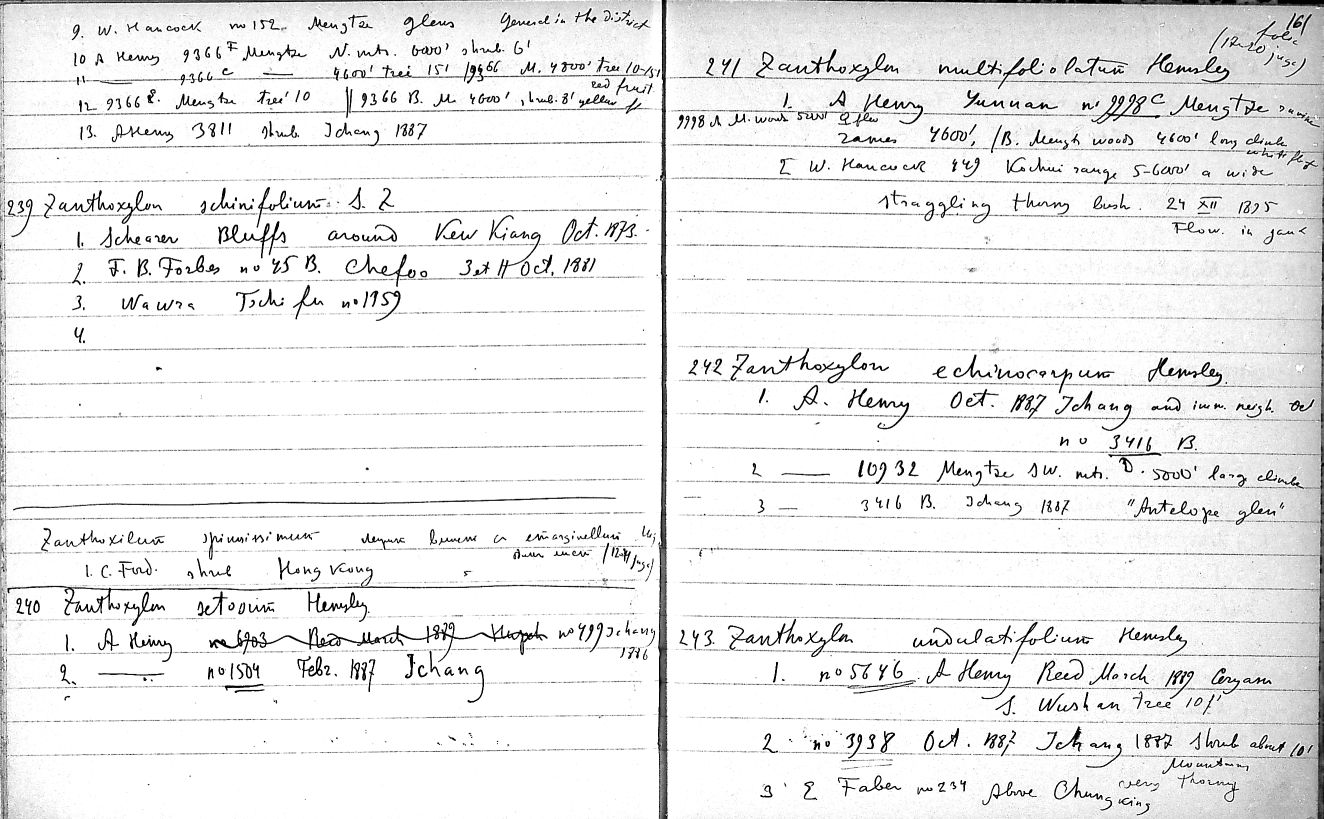 9. W. Hancock no 152. Mengtze glens General in the district
10 A Henry 9366 F Mengtze N. mts. 6000' shrub 6'
11 —— 9366 C — 4600' tree 15' / 9366 M. 4800' tree 10-15'
red fruit
12 9366 Mengtze tree 10 || 9366 B. M. 4600', shrub 8' yellow fl
13. A Henry 3811 shrub Ichang 1887
239 Zanthoxylon schinifolium S. Z
1. Schearer Bluffs around Kew Kiang Oct. 1873.
2. F. B. Forbes no 45 B. Chefoo 3 et 11 Oct, 1881
3. Wawra Tschi fu no 1959
4.
Zanthoxilum spinosissimum emarginellum
1. C. Ford. shrub Hong Kong
240 Zanthoxylon setosum Hemsley
1. A Henry no 6903 March 1889 Hupeh no 499 Ichang
1886
2. —— no 1504 Febr. 1887 Ichang
161
folio
(12-20 juga)
241 Zanthoxylon multifoliolatum Hemsley
1. A Henry Yunnan no 9998 C Mengtze ravine
9998 A M. woods 5200' ♀ flw
4600', / B. Mengtz woods 4600' long climb
white fls
2 W. Hancock 449 Kochui range 5-6000' a wide
straggling thorny bush. 24 XII 1895
Flow. in june
242 Zanthoxylon echinocarpum Hemsley.
1. A. Henry Oct. 1887 Ichang and imm. neigh. Oct
no 3416 B.
2 —— 10932 Mengtze SW. mts. D. 5000' large climb
3 — 3416 B. Ichang 1887 "Antelope glen"
243 Zanthoxylon undulatifolium Hemsley
1. no 5646 A Henry Reed March 1889
S. Wushan tree 10f'
2 no 3938 Oct. 1887 Ichang 1887 shrub about 10'
Mountains
3 E Faber no 234 Above Chungking very thorny